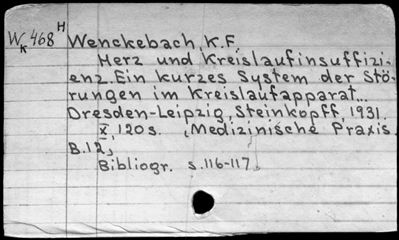 WK 468 H
Wenckebach, K.F.
Herz und Kreislaufinsuffizi-
enz. Ein kurzes System der Stö-
rungen im Kreislaufapparat...
Dresden-Leipzig, Steinkopff, 1931.
X, 120 s. (Medizinische Praxis.
B. 12)
Bibliogr. s. 116-117.